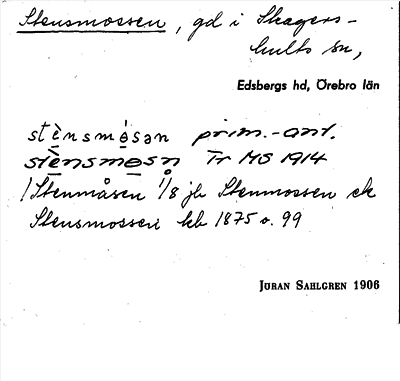 Stensmossen, gd i Skagers-
hults sn,
Edsbergs hd, Örebro län
stènsmósən prim.-ant.
stènsmosn Tr MG 1914
/Stenmåsen 1/8 jb Stenmossen ek
Stensmossen kb 1875 o. 99
JÖRAN SAHLGREN 1906